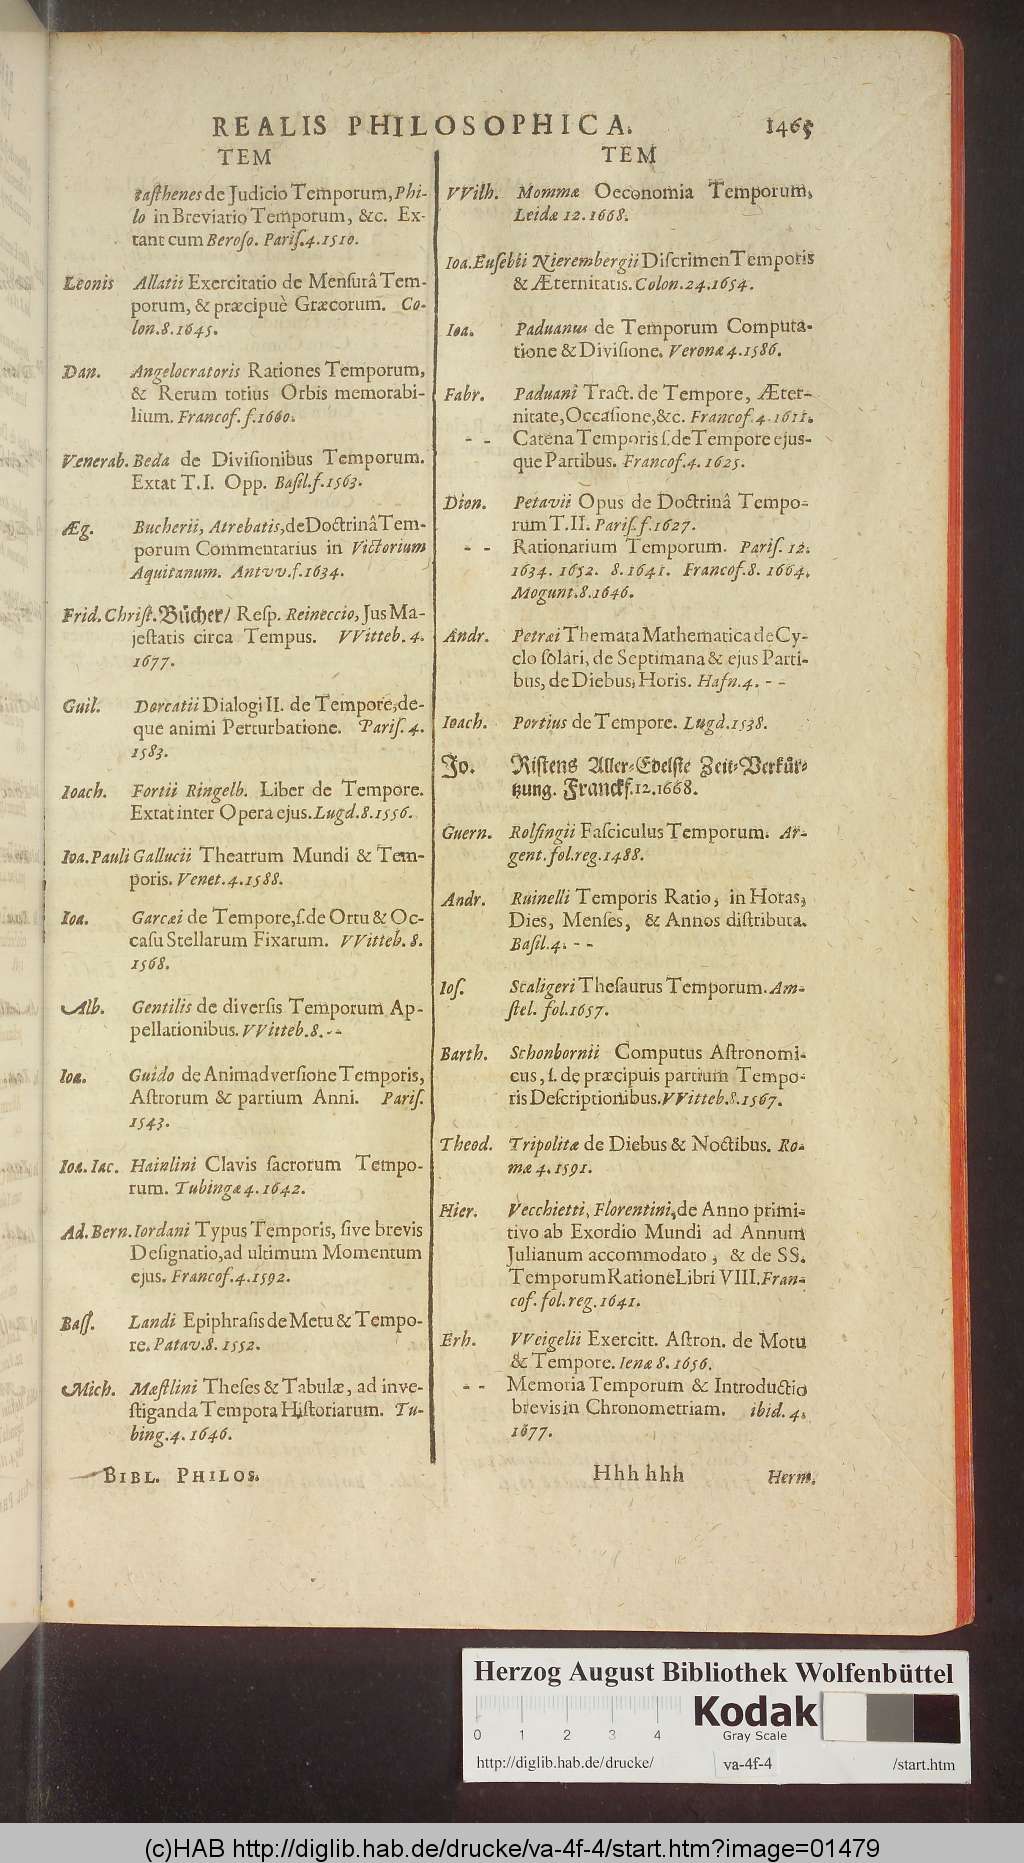 REALIS PHILOSOPHICA. 1465
TEM
taſthenes de Judicio Temporum, Phi-
lo in Breviario Temporum, &c. Ex-
tant cum Beroſo. Pariſ. 4. 1510.
Leonis Allatii Exercitatio de Menſurâ Tem-
porum, & præcipuè Græcorum. Co-
lon. 8. 1645.
Dan. Angelocratoris Rationes Temporum,
& Rerum totius Orbis memorabi-
lium. Francof. f. 1660.
Venerab. Beda de Diviſionibus Temporum.
Extat T. I. Opp. Baſil. f. 1563.
Æg. Bucherii, Atrebatis, de Doctrinâ Tem-
porum Commentarius in Victorium
Aquitanum. Antvv. f. 1634.
Frid. Chriſt. Bücher/ Reſp. Reineccio, Jus Ma-
jeſtatis circa Tempus. VVitteb. 4.
1677.
Guil. Dorcatii Dialogi II. de Tempore, de-
que animi Perturbatione. Pariſ. 4.
1583.
Ioach. Fortii Ringelb. Liber de Tempore.
Extat inter Opera ejus. Lugd. 8. 1556.
Ioa. Pauli Gallucii Theatrum Mundi & Tem-
poris. Venet. 4. 1588.
Ioa. Garcæi de Tempore, ſ. de Ortu & Oc-
caſu Stellarum Fixarum. VVitteb. 8.
1568.
Alb. Gentilis de diverſis Temporum Ap-
pellationibus. VVitteb. 8. - -
Ioa. Guido de Animadverſione Temporis,
Aſtrorum & partium Anni. Pariſ.
1543.
Ioa. Iac. Hainlini Clavis ſacrorum Tempo-
rum. Tubingæ 4. 1642.
Ad. Bern. Iordani Typus Temporis, ſive brevis
Deſignatio, ad ultimum Momentum
ejus. Francof. 4. 1592.
Baſſ. Landi Epiphraſis de Metu & Tempo-
re. Patav. 8. 1552.
Mich. Mæſtlini Theſes & Tabulæ, ad inve-
ſtiganda Tempora Hiſtoriarum. Tu-
bing. 4. 1646.
BIBL. PHILOS.
TEM
VVilh. Mommæ Oeconomia Temporum,
Leidæ 12. 1668.
Ioa. Euſebii Nierembergii Diſcrimen Temporis
& Æternitatis. Colon. 24. 1654.
Ioa. Paduanus de Temporum Computa-
tione & Diviſione. Veronæ 4. 1586.
Fabr. Paduani Tract. de Tempore, Æter-
nitate, Occaſione, &c. Francof. 4. 1611.
- - Catena Temporis ſ. de Tempore ejus-
que Partibus. Francof. 4. 1625.
Dion. Petavii Opus de Doctrinâ Tempo-
rum T. II. Pariſ. f. 1627.
- - Rationarium Temporum. Pariſ. 12.
1634. 1652. 8. 1641. Francof. 8. 1664.
Mogunt. 8. 1646.
Andr. Petræi Themata Mathematica de Cy-
clo ſolari, de Septimana & ejus Parti-
bus, de Diebus, Horis. Hafn. 4. - -
Ioach. Portius de Tempore. Lugd. 1538.
Jo. Riſtens Aller-Edelſte Zeit-Verkür-
tzung. Franckf. 12. 1668.
Guern. Rolfingii Faſciculus Temporum. Ar-
gent. fol. reg. 1488.
Andr. Ruinelli Temporis Ratio, in Horas,
Dies, Menſes, & Annos diſtributa.
Baſil. 4. - -
Ioſ. Scaligeri Theſaurus Temporum. Am-
ſtel. fol. 1657.
Barth. Schonbornii Computus Aſtronomi-
cus, ſ. de præcipuis partium Tempo-
ris Deſcriptionibus. VVitteb. 8. 1567.
Theod. Tripolitæ de Diebus & Noctibus. Ro-
mæ 4. 1591.
Hier. Vecchietti, Florentini, de Anno primi-
tivo ab Exordio Mundi ad Annum
Julianum accommodato, & de SS.
Temporum Ratione Libri VIII. Fran-
cof. fol. reg. 1641.
Erh. VVeigelii Exercitt. Aſtron. de Motu
& Tempore. Ienæ 8. 1656.
- - Memoria Temporum & Introductio
brevis in Chronometriam. ibid. 4.
1677.
Hhh hhh Herm.
Herzog August Bibliothek Wolfenbüttel
0 1 2 3 4
Kodak
Gray Scale
http://diglib.hab.de/drucke/ va-4f-4 /start.htm
(c)HAB http://diglib.hab.de/drucke/va-4f-4/start.htm?image=01479